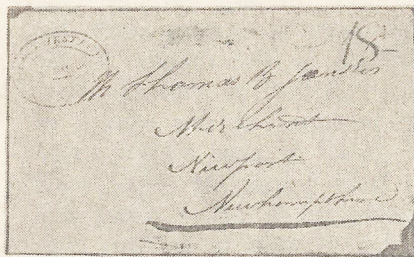 18
Mr Thomas B
Merchant
Newport
Newhampshire